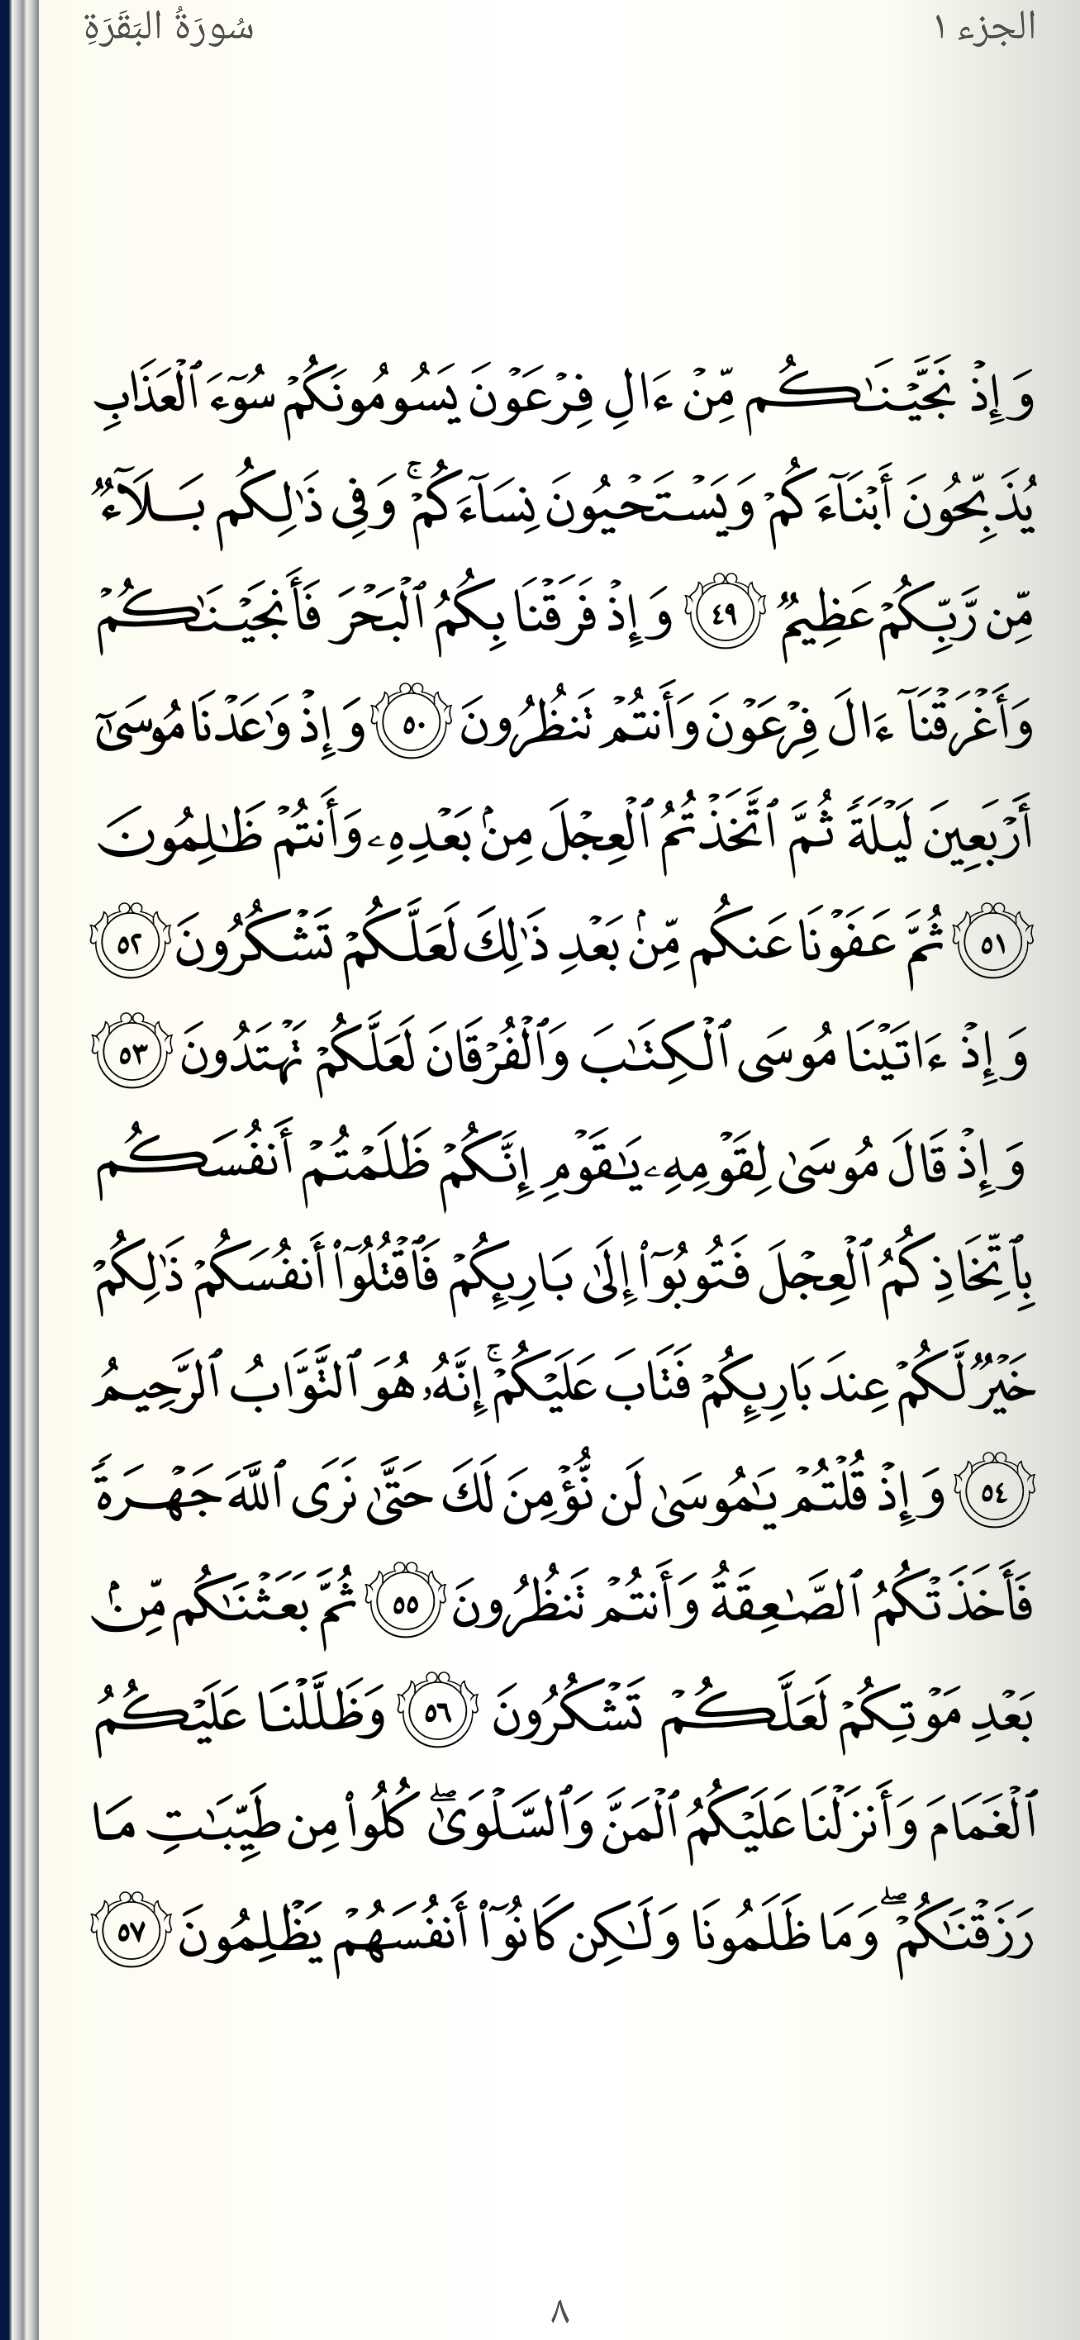 الجزء ١
سُورَةُ البَقَرَةِ
وَإِذۡ نَجَّيۡنَـٰكُم مِّنۡ ءَالِ فِرۡعَوۡنَ يَسُومُونَكُمۡ سُوٓءَ ٱلۡعَذَابِ
يُذَبِّحُونَ أَبۡنَآءَكُمۡ وَيَسۡتَحۡيُونَ نِسَآءَكُمۡۚ وَفِي ذَٰلِكُم بَلَآءٌ
مِّن رَّبِّكُمۡ عَظِيمٌ ٤٩ وَإِذۡ فَرَقۡنَا بِكُمُ ٱلۡبَحۡرَ فَأَنجَيۡنَـٰكُمۡ
وَأَغۡرَقۡنَآ ءَالَ فِرۡعَوۡنَ وَأَنتُمۡ تَنظُرُونَ ٥٠ وَإِذۡ وَٰعَدۡنَا مُوسَىٰٓ
أَرۡبَعِينَ لَيۡلَةً ثُمَّ ٱتَّخَذۡتُمُ ٱلۡعِجۡلَ مِنۢ بَعۡدِهِۦ وَأَنتُمۡ ظَـٰلِمُونَ
٥١ ثُمَّ عَفَوۡنَا عَنكُم مِّنۢ بَعۡدِ ذَٰلِكَ لَعَلَّكُمۡ تَشۡكُرُونَ ٥٢
وَإِذۡ ءَاتَيۡنَا مُوسَى ٱلۡكِتَـٰبَ وَٱلۡفُرۡقَانَ لَعَلَّكُمۡ تَهۡتَدُونَ ٥٣
وَإِذۡ قَالَ مُوسَىٰ لِقَوۡمِهِۦ يَـٰقَوۡمِ إِنَّكُمۡ ظَلَمۡتُمۡ أَنفُسَكُم
بِٱتِّخَاذِكُمُ ٱلۡعِجۡلَ فَتُوبُوٓاْ إِلَىٰ بَارِئِكُمۡ فَٱقۡتُلُوٓاْ أَنفُسَكُمۡ ذَٰلِكُمۡ
خَيۡرٌ لَّكُمۡ عِندَ بَارِئِكُمۡ فَتَابَ عَلَيۡكُمۡۚ إِنَّهُۥ هُوَ ٱلتَّوَّابُ ٱلرَّحِيمُ
٥٤ وَإِذۡ قُلۡتُمۡ يَـٰمُوسَىٰ لَن نُّؤۡمِنَ لَكَ حَتَّىٰ نَرَى ٱللَّهَ جَهۡرَةً
فَأَخَذَتۡكُمُ ٱلصَّـٰعِقَةُ وَأَنتُمۡ تَنظُرُونَ ٥٥ ثُمَّ بَعَثۡنَـٰكُم مِّنۢ
بَعۡدِ مَوۡتِكُمۡ لَعَلَّكُمۡ تَشۡكُرُونَ ٥٦ وَظَلَّلۡنَا عَلَيۡكُمُ
ٱلۡغَمَامَ وَأَنزَلۡنَا عَلَيۡكُمُ ٱلۡمَنَّ وَٱلسَّلۡوَىٰۖ كُلُواْ مِن طَيِّبَـٰتِ مَا
رَزَقۡنَـٰكُمۡۖ وَمَا ظَلَمُونَا وَلَـٰكِن كَانُوٓاْ أَنفُسَهُمۡ يَظۡلِمُونَ ٥٧
٨